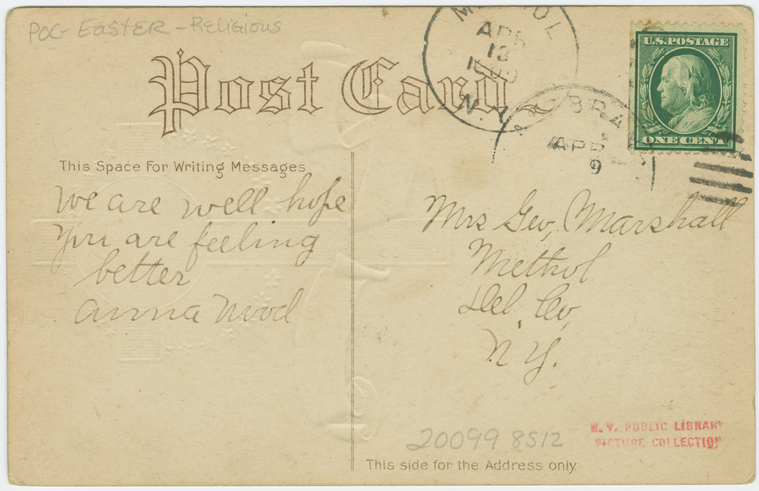 POC- EASTER - Religious
Post Card
U.S. POSTAGE
ONE CENT
APR
13
N.Y.
APR
9
This Space For Writing Messages
we are well hope
you are feeling
better
anna
Mrs Geo, Marshall
Del Co,
N.Y.
20099 8512
N. Y. PUBLIC LIBRARY
PICTURE COLLECTION
This side for the Address only.